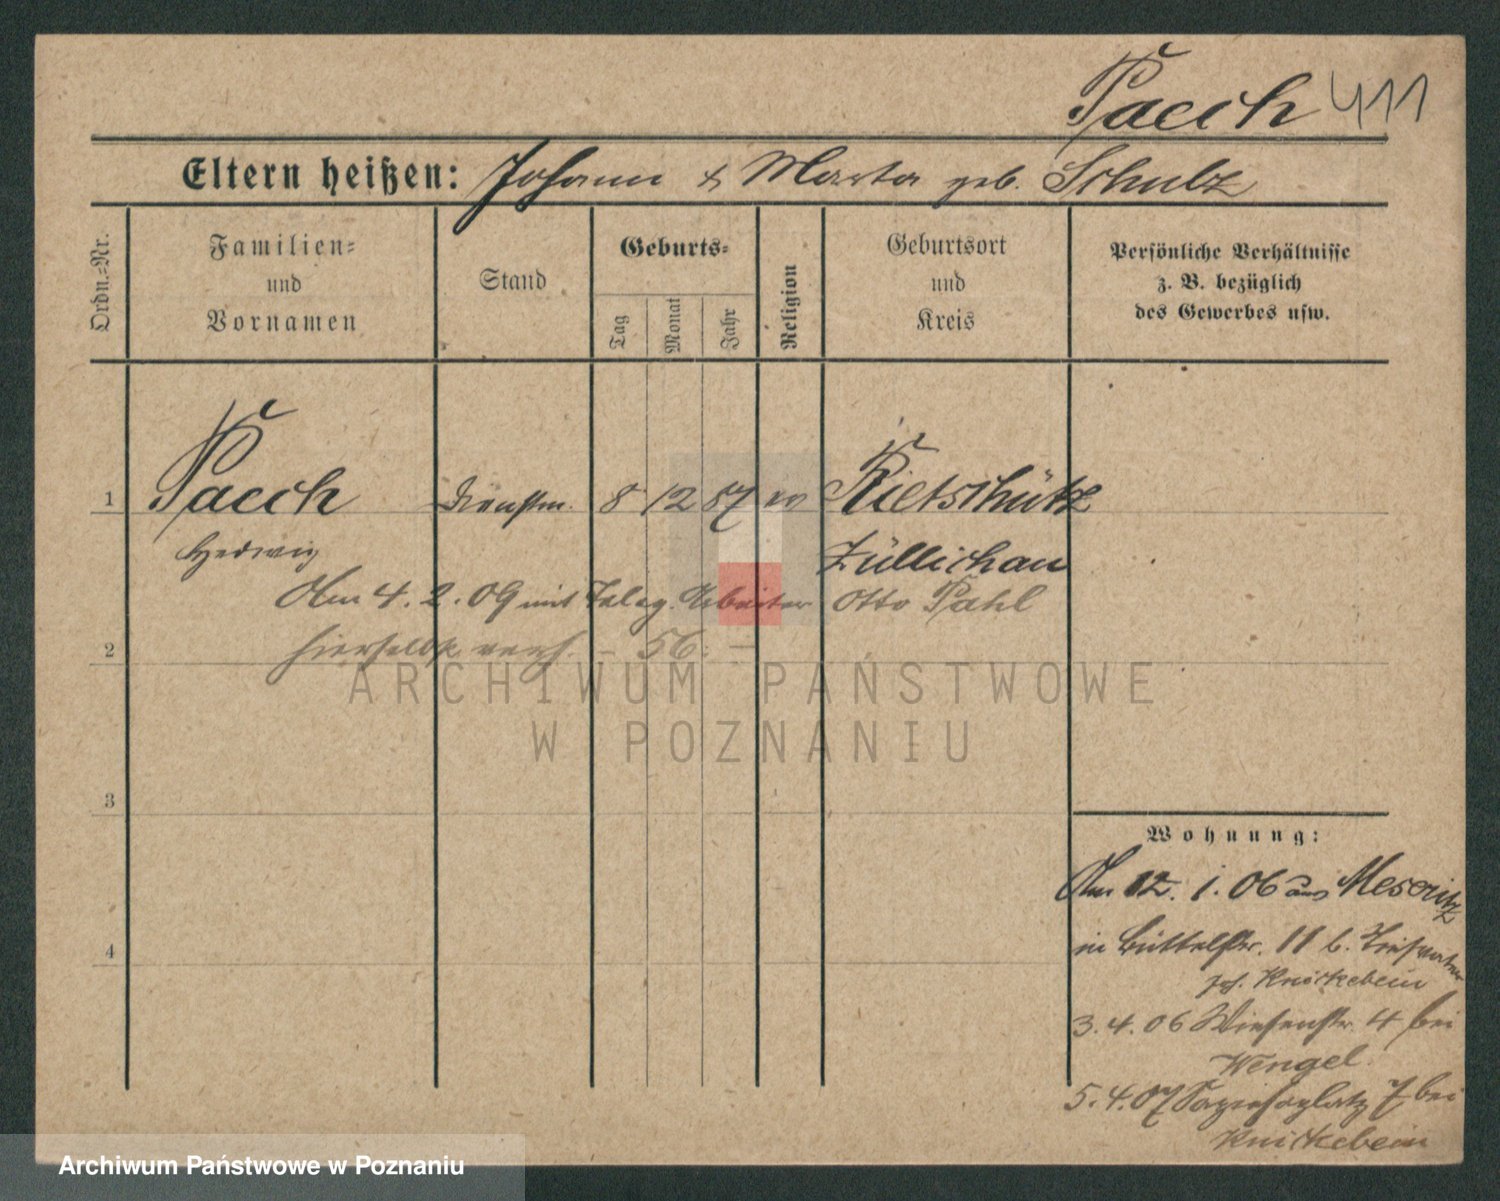 Pacch 411
Eltern heißen: Johann & Marta geb. Schulz
Ordn.=Nr.
Familien=
und
Vornamen
Stand
Geburts=
Tag
Monat
Jahr
Religion
Geburtsort
und
Kreis
Persönliche Verhältnisse
z. B. bezüglich
des Gewerbes usw.
1 Pacch Dienstm. 8 12 87 ev Rietschütz
Hedwig Züllichau
Am 4. 2. 09 mit Teleg. Arbeiter Otto Pahl
2 hierselbst verh. – 56. –
ARCHIWUM PAŃSTWOWE
W POZNANIU
3
Wohnung:
Am 12. 1. 06 aus Meseritz
4 in Büttelstr. 11 b.
Joh. Knickebein
3. 4. 06 Wiesenstr. 4 bei
Wengel
5. 4. 07 Sapiehaplatz 7 bei
Knickebein
Archiwum Państwowe w Poznaniu